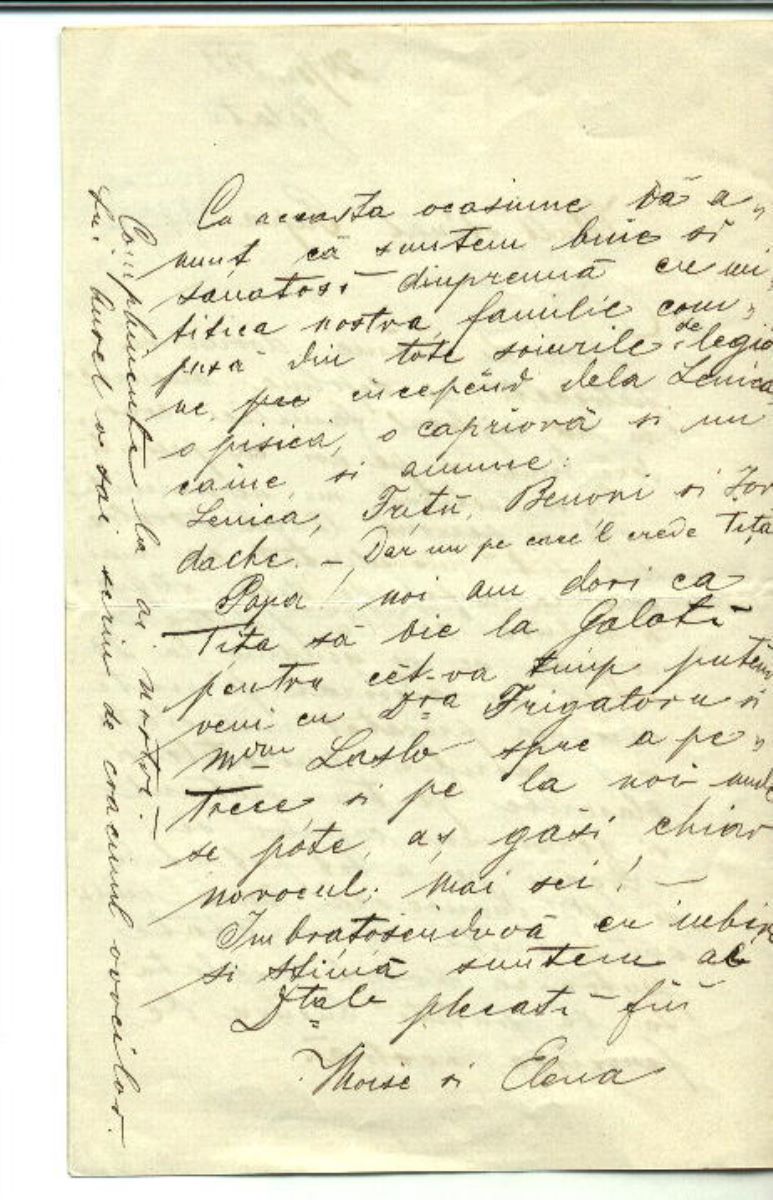 Cu aceasta ocasiune vă a„
nunt că suntem bine si
sanatosi dinpreună cu mi„
titica nostra, familie com„
pusă din tote soiurile de legio
ne pre incepênd dela Lenica
o pisică, o capriovă si un
caine, si anume:
Lenica, Fritū, Benoni si Ior
dache. – Dar nu pe care'l crede Tița
Papa! noi am dori ca
Tita să vie la Galati
pentru cêt-va timp putênd
veni cu Dra Frigatoru si
mme Laslo spre a pe„
trece, si pe la noi unde
se póte, aș găsi chiar
norocul; mai sci! –
Imbratosinduvă cu iubire
si stimă suntem al
Dtale plecati fii
Moise si Elena
Complimente la ai nostri.
Lui Aurel o sai scriu de craciunul ovreilor.